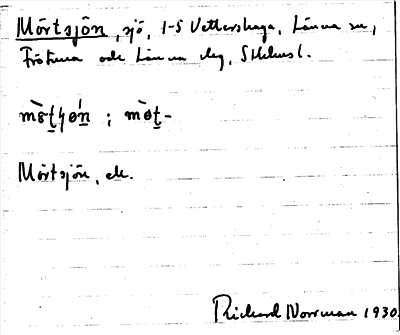 Mörtsjön, sjö, 1-5 Vettershaga, Länna sn,
Frötuna och Länna slg, Sthlmsl.
Mörtsjön, ek.
Richard Norrman 1930.